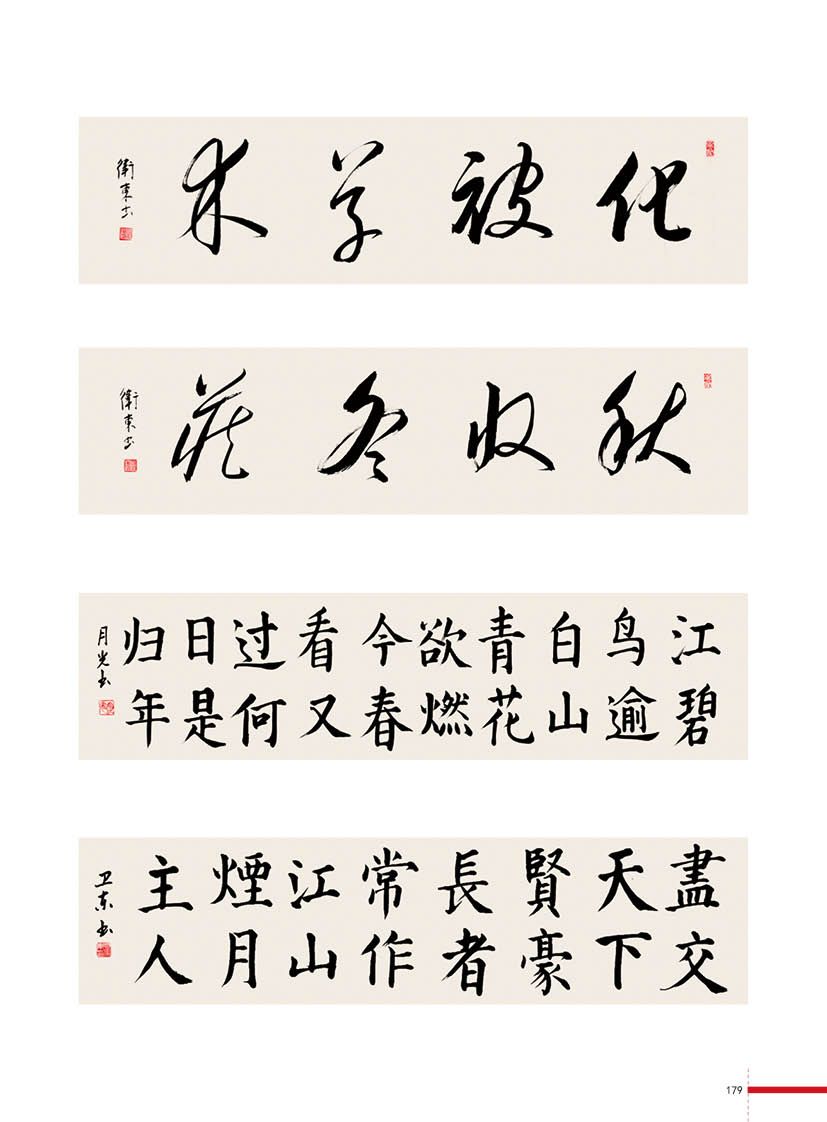 化被草木
衛東书
秋收冬藏
衛東书
江碧
鸟逾
白山
青花
欲燃
今春
看又
过何
日是
归年
月光书
盡交
天下
賢豪
長者
常作
江山
煙月
主人
卫东书
179